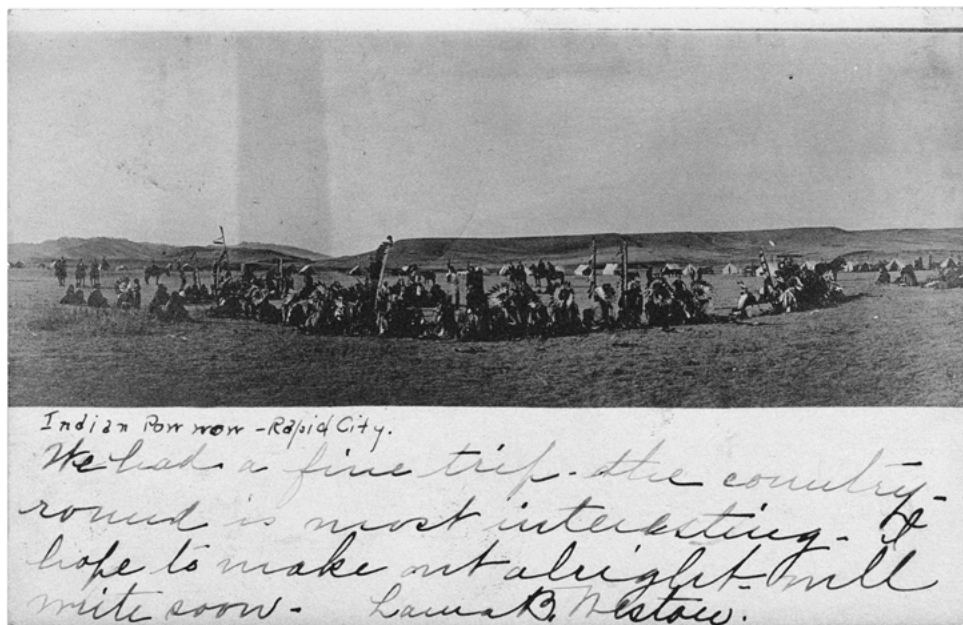 Indian Pow wow - Rapid City.
We had a fine trip - the country
round is most interesting - I
hope to make out alright - will
write soon - Laura B. Weston.